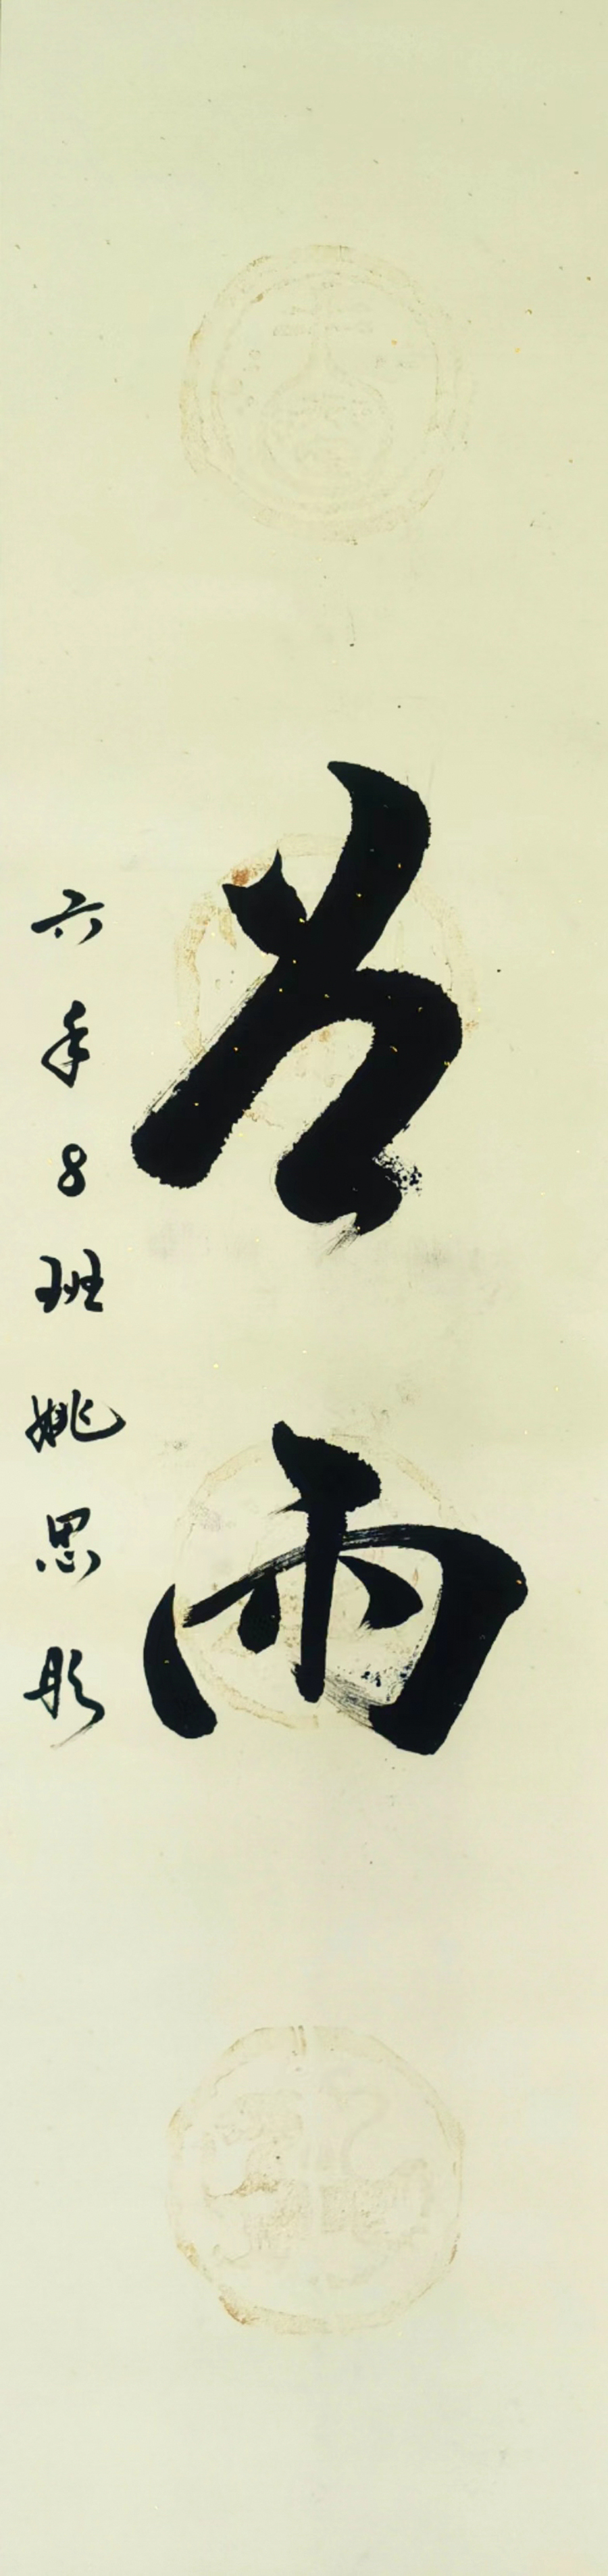 谷雨
六年8班姚思彤